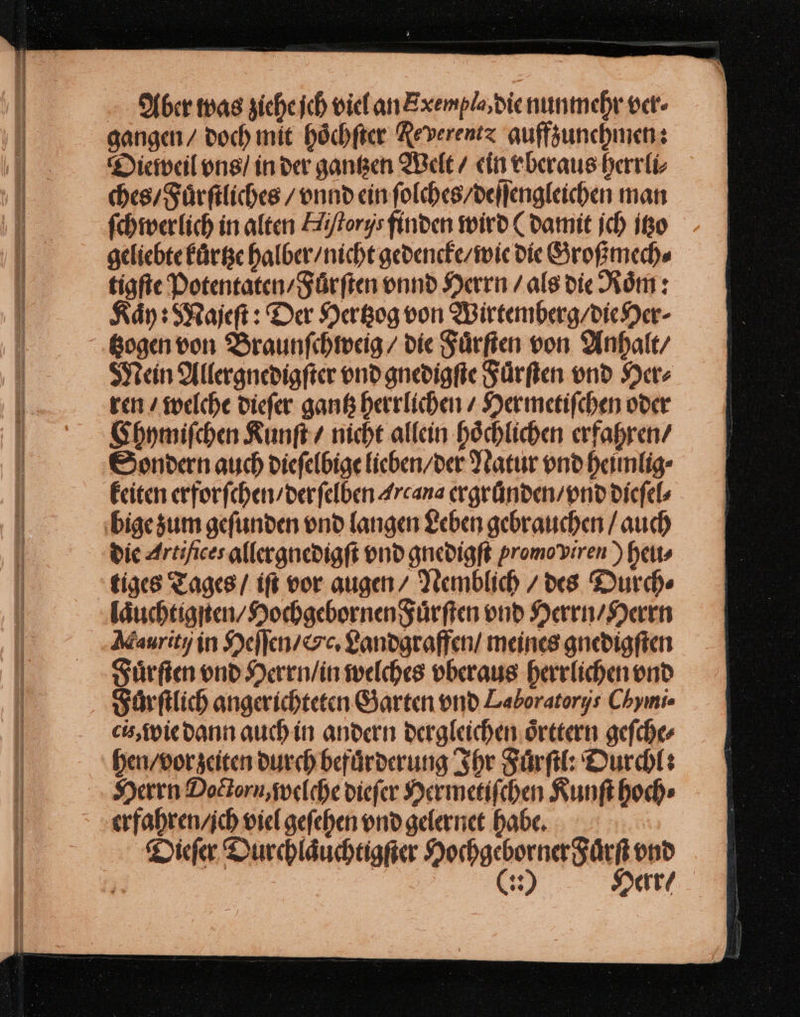 Aber was ziehe jch viel an Exempla, die nunmehr ver⸗
gangen / doch mit hoͤchſter Reverentz auffzunehmen:
Dieweil vns / in der gantzen Welt / ein vberaus herrli⸗
ches / Fuͤrſtliches / vnnd ein ſolches / deſſengleichen man
ſchwerlich in alten Hiſtorijs finden wird (damit jch itzo
geliebte kuͤrtze halber / nicht gedencke / wie die Großmech⸗
tigſte Potentaten / Fuͤrſten vnnd Herrn / als die Roͤm:
Kaͤy: Majeſt: Der Hertzog von Wirtemberg / die Her⸗
tzogen von Braunſchweig / die Fuͤrſten von Anhalt /
Mein Allergnedigſter vnd gnedigſte Fuͤrſten vnd Her⸗
ren / welche dieſer gantz herrlichen / Hermetiſchen oder
Chymiſchen Kunſt / nicht allein hoͤchlichen erfahren /
Sondern auch dieſelbige lieben / der Natur vnd heimlig⸗
keiten erforſchen / derſelben Arcana ergruͤnden / vnd dieſel⸗
bige zum geſunden vnd langen Leben gebrauchen / auch
die Artifices allergnedigſt vnd gnedigſt promoviren) heu⸗
tiges Tages / iſt vor augen / Nemblich / des Durch⸗
laͤuchtigſten / Hochgebornen Fuͤrſten vnd Herrn / Herrn
Mauritij in Heſſen / &c. Landgraffen / meines gnedigſten
Fuͤrſten vnd Herrn / in welches vberaus herrlichen vnd
Fuͤrſtlich angerichteten Garten vnd Laboratorijs Chymi⸗
cis, wie dann auch in andern dergleichen oͤrttern geſche⸗
hen / vor zeiten durch befuͤrderung Ihr Fuͤrſtl: Durchl:
Herrn Doctorn, welche dieſer Hermetiſchen Kunſt hoch⸗
erfahren / jch viel geſehen vnd gelernet habe.
Dieſer Durchlaͤuchtigſter Hochgeborner Fuͤrſt vnd
(::) Herr /